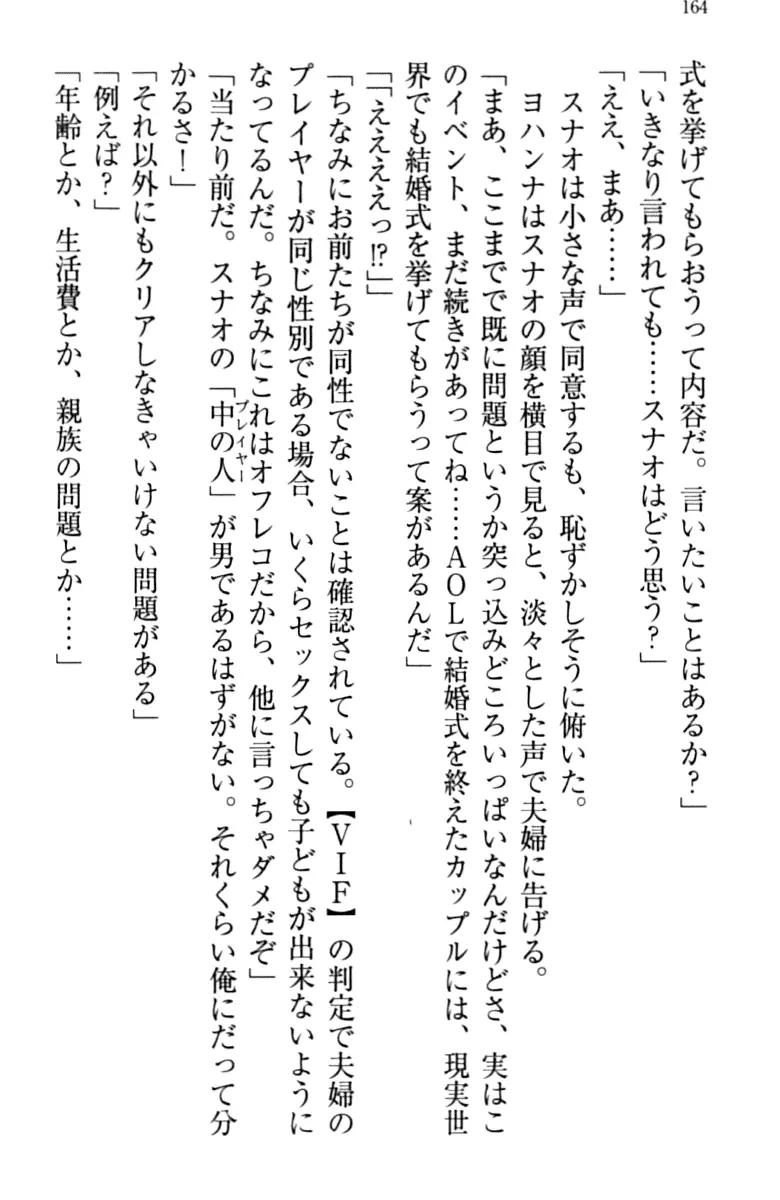 164
式を挙げてもらおうって内容だ。言いたいことはあるか?」
「いきなり言われても……スナオはどう思う?」
「ええ、まあ……」
スナオは小さな声で同意するも、恥ずかしそうに俯いた。
ヨハンナはスナオの顔を横目で見ると、淡々とした声で夫婦に告げる。
「まあ、ここまでで既に問題というか突っ込みどころいっぱいなんだけどさ、実はこ
のイベント、まだ続きがあってね……AOLで結婚式を終えたカップルには、現実世
界でも結婚式を挙げてもらうって案があるんだ」
「「ええええっ!?」」
「ちなみにお前たちが同性でないことは確認されている。【VIF】の判定で夫婦の
プレイヤーが同じ性別である場合、いくらセックスしても子どもが出来ないように
なってるんだ。ちなみにこれはオフレコだから、他に言っちゃダメだぞ」
プレイヤー
「当たり前だ。スナオの「中の人」が男であるはずがない。それくらい俺にだって分
かるさ!」
「それ以外にもクリアしなきゃいけない問題がある」
「例えば?」
「年齢とか、生活費とか、親族の問題とか……」